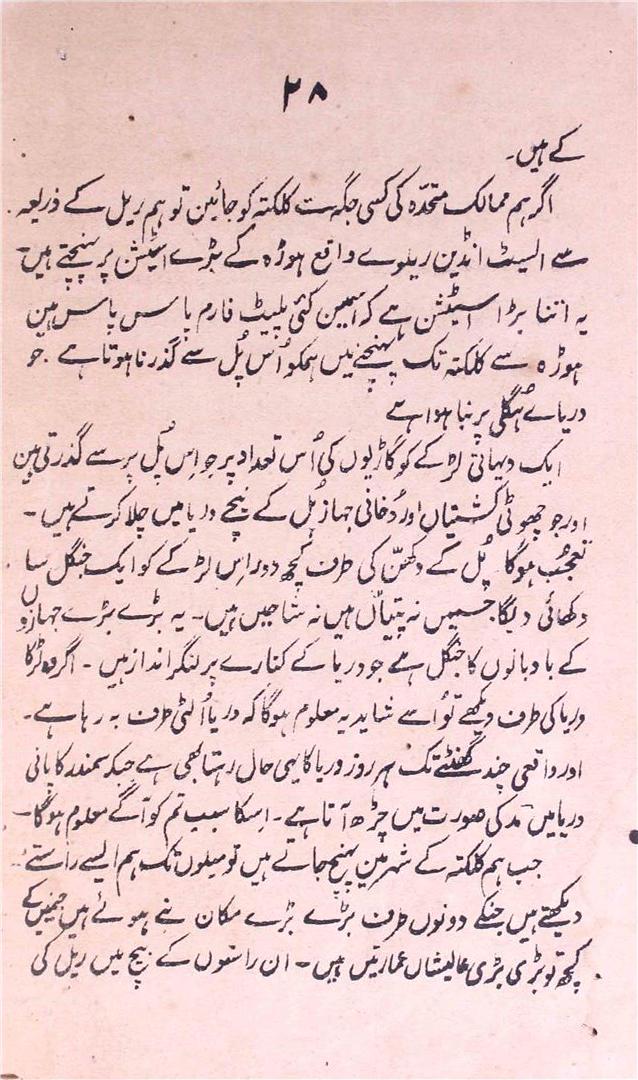 ۲۸
کے ہیں۔
اگر ہم ممالک متحدّہ کی کسی جگہ سے کلکتہ کو جائین تو ہم ریل کے ذریعہ
سے ایسٹ انڈین ریلوے واقع ہوڑہ کے بڑے اسٹیشن پر پہنچتے ہیں۔
یہ اتنا بڑا اسٹیشن ہے کہ اسمین کئی پلیٹ فارم پاس پاس ہین
ہوڑہ سے کلکتہ تک پہنچنے میں ہمکو اُس پُل سے گذرنا ہوتا ہے ۔ جو
دریاے ہُگلی پر بنا ہوا ہے
ایک دیہاتی لڑکے کو گاڑیوں کی اُس تعداد پر جو اِس پُل پر سے گذرتی ہین
اور جو چھوٹی کشتیاں اور دُخانی جہاز پُل کے نیچے دریا میں چلا کرتے ہیں ۔
تعجب ہوگا پُل کے دکھّن کی طرف کچھ دور اِس لڑکے کو ایک جنگل سا
دکھائی دیگا جسمیں نہ پتیاں ہیں نہ شاخیں ہیں۔ یہ بڑے بڑے جہازوں
کے بادبانوں کا جنگل ہے جو دریا کے کنارے پر لنگر انداز ہیں ۔ اگر وہ لڑکا
دریا کی طرف دیکھے تو اُسے شاید یہ معلوم ہوگا کہ دریا اُلٹی طرف بہ رہا ہے۔
اور واقعی چند گھنٹے تک ہر روز دریا کا یہی حال رہتا بھی ہے جبکہ سمندر کا پانی
دریا میں مد کی صورت میں چڑھ آتا ہے۔ اِسکا سبب تم کو آگے معلوم ہوگا۔
جب ہم کلکتہ کے شہر مین پہنچ جاتے ہیں تو میلوں تک ہم ایسے راستے
دیکھتے ہیں جنکے دونوں طرف بڑے بڑے مکان بنے ہوئے ہیں جنمیں کے
کچھ تو بڑی بڑی عالیشاں عمارتیں ہیں ۔ ان راستوں کے بیچ میں ریل کی